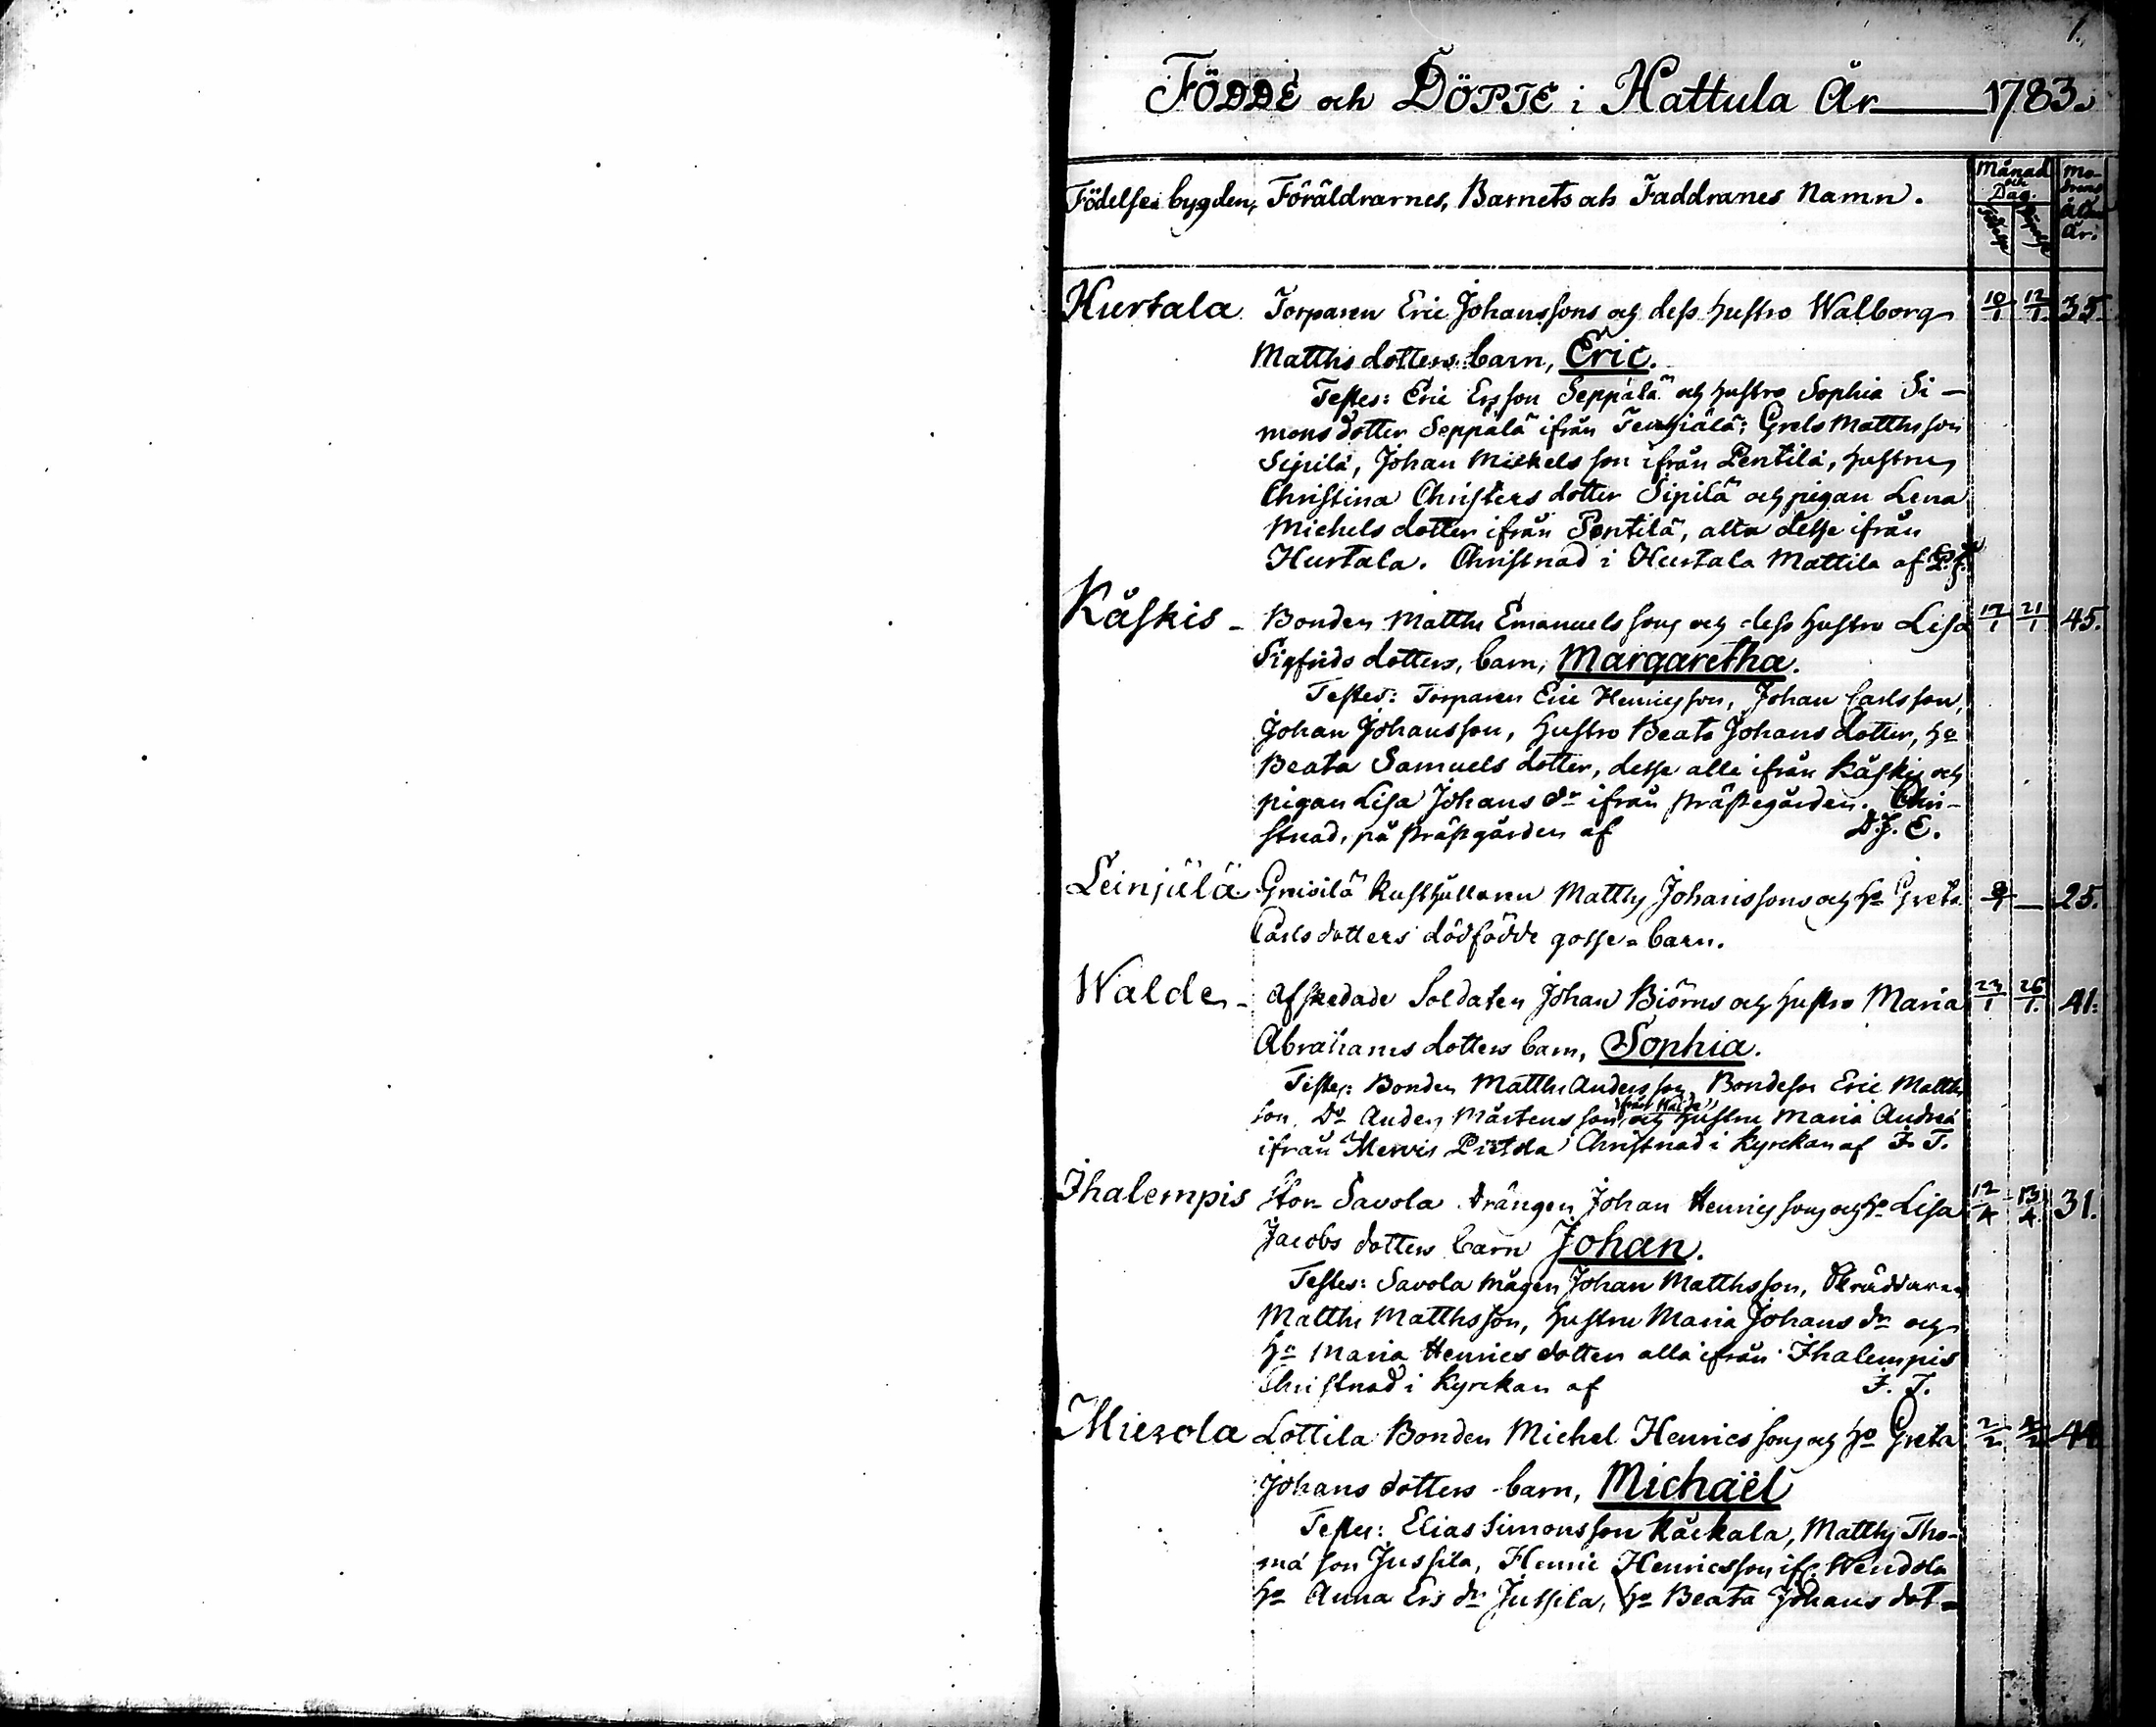 1.
FÖDDE och DÖPTE i Hattula År 1783.
Födelse bygden, Föräldrarnes, Barnets och Faddranes Namn. Månad och Dag. Modrens ålder År.
Hurtala Torparen Eric Johanssons och dess hustro Walborg 10/1 12/1 35.
Matths dotters barn, Eric.
Testes: Eric Ersson Seppälä och hustro Sophia Si-
mons dotter Seppälä ifrån Grels Matthsson
Sipilä, Johan Michelsson ifrån Pentilä, hustru
Christina Christers dotter Sipilä och pigan Lena
Michels dotter ifrån Pentilä, alla desse ifrån
Hurtala. Christnad i Hurtala Mattila af
Käskis - Bonden Matths Emanuelssons och dess hustro Lisa 21/1 45.
Sigfrids dotters, barn, Margaretha.
Testes: Torparen Eric Henricsson, Johan Carlsson,
Johan Johansson, hustro Beata Johans dotter, ho
Beata Samuels dotter, desse alla ifrån Käskis och
pigan Lisa Johans dr ifrån Prästegården. Chri-
stnad, på prästgården af D.J.E.
Leinjälä Rusthållaren Matths Johanssons och ho Greta — 25.
Carls dotters dödfödde gosse-barn.
Walde - Afskedade Soldaten Johan Biörns och hustro Maria 23/1 26/1. 41.
Abrahams dotters barn, Sophia.
Testes: Bonden Matths Andersson, Bondeson Eric Matths
son, Do Anders Mårtensson ifrån Walde och hustru Maria Andreä
ifrån Mervis Christnad i Kyrckan af F. T.
Ihalempis Stor Savola drängen Johan Henricssons och ho Lisa 31.
Jacobs dotters barn Johan.
Testes: Savola mågen Johan Matthsson, Skräddaren
Matths Matthsson, hustru Maria Johans dr och
ho Maria Henrics dotter alla ifrån Ihalempis
Christnad i Kyrckan af F. T.
Mierola Lottila Bonden Michel Henricssons och ho Greta 2/2 44
Johans dotters barn, Michaël
Testes: Elias Simonsson Käckala, Matths Tho-
mä son Jussila, Henric Henricsson ifr.
ho Anna Ers dr Jussila, ho Beata Johans dot-